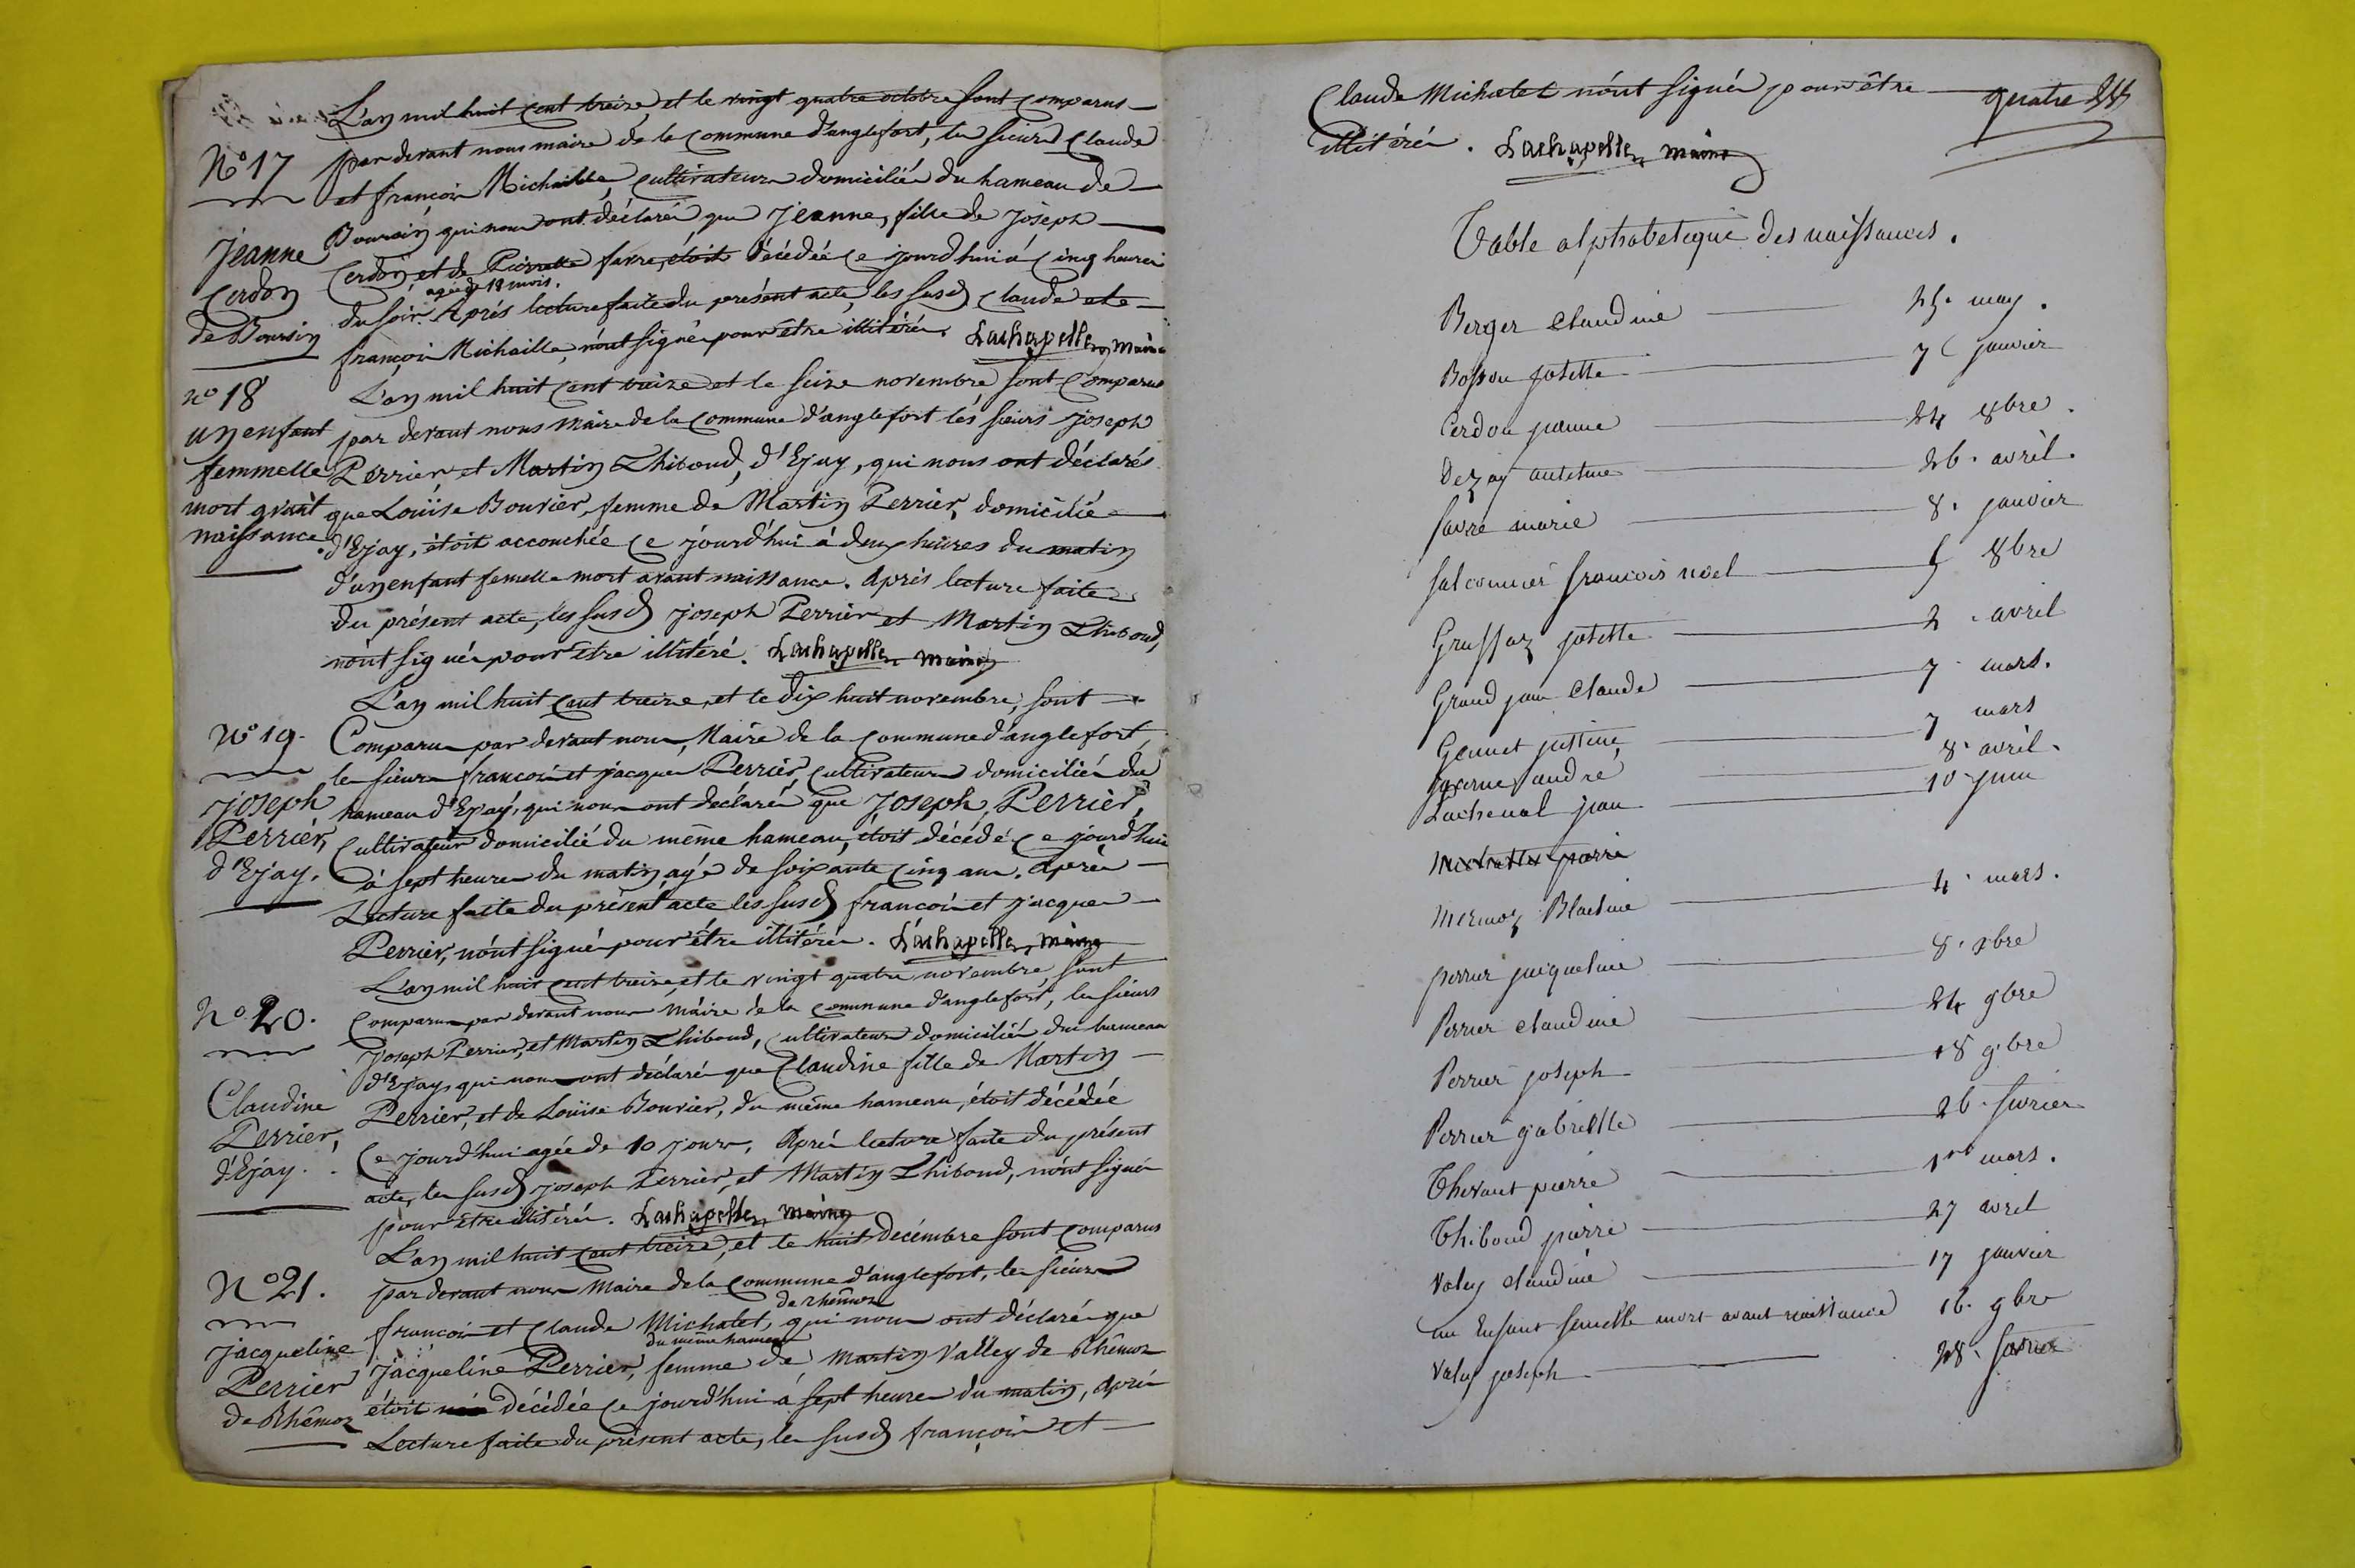 L'an mil huit cent treize, et le vingt quatre octobre sont comparus
N° 17
par devant nous maire de la commune d'anglefort, les sieurs Claude
et françois Michaille, cultivateurs domiciliés du hameau de
Boursin qui nous ont déclarés que Jeanne, fille de Joseph
Jeanne
Cerdon
de Boursin
Cerdon, et de Pierrette favre, étoit décédée ce jourd'hui à cinq heures
agée de 18 mois.
du soir. Après lecture faite du présent acte, les susd Claude et
françois Michaille, n'ont signés pour être illitérés. Lachapelle, maire
n° 18
un enfant
femmelle
mort avant
naissance
L'an mil huit cent treize et le seize novembre sont comparus
par devant nous Maire de la commune d'anglefort les sieurs joseph
Perrier et Martin Thiboud, d'Ejay, qui nous ont déclarés
que Louïse Bouvier, femme de Martin Perrier, domicilié
d'Ejay, étoit accouchée ce jourd'hui à deux heures du matin
d'un enfant femelle mort avant naissance. Après lecture faite
du présent acte, les susd joseph Perrier et Martin Thiboud,
n'ont signés pour être illitéré. Lachapelle, maire
L'an mil huit cent treize, et le dix huit novembre, sont
N° 19.
Comparus par devant nous, Maire de la commune d'anglefort,
les sieurs françois et jacques Perrier, cultivateurs domiciliés du
joseph
Perrier,
d'Ejay.
hameau d'Ejay, qui nous ont déclarés que Joseph, Perrier,
Cultivateur domicilié du même hameau, étoit décédé ce jourd'hui
à sept heures du matin agé de soixante cinq ans. Après
Lecture faite du présent acte les susd françois et jacques
Perrier, n'ont signés pour être illitérés. Lachapelle, maire
L'an mil huit cent treize, et le vingt quatre novembre sont
N° 20.
comparus par devant nous Maire de la commune d'anglefort, les sieurs
Joseph Perrier, et Martin Thiboud, cultivateurs domiciliés du hameau
d'Ejay, qui nous ont déclarés que Claudine fille de Martin
Claudine
Perrier,
d'Ejay.
Perrier, et de Louïse Bouvier, du même hameau, étoit décédée
Ce jourd'hui agée de 10 jours. Après lecture faite du présent
acte, les susd joseph Perrier, et Martin Thiboud, n'ont signés
pour être illitérés. Lachapelle, maire
L'an mil huit cent treize, et le huit Decembre sont comparus
N° 21.
par devant nous Maire de la commune d'anglefort, les sieurs
de rhêmoz
françois et Claude Michalet, qui nous ont déclarés que
du même hameau
jacqueline
Perrier
de Rhêmoz
Jacqueline Perrier, femme de Martin Valley de Rhêmoz
étoit décédée ce jourd'hui à sept heures du matin, Après
Lecture faite du présent acte, les susd françois et
Claude Michalet n'ont signés pour être
illitérés. Lachapelle, maire
quatre
Table alphabetique des naissances.
Berger Claudine 25. may.
Bosson josette 7 janvier
Cerdon jeanne 24 8bre.
Dezay antelme 26. avril.
favre marie 8. janvier
falconnier francois noel 5 8bre
Grassaz josette 2. avril
Grand jean Claude 7. mars.
Gounet justine 7 mars
andré 8. avril.
Lachenal jean 10 juin
pierre
Mermoz Blaisine 4. mars.
perrier jacqueline 8. xbre
Perrier claudine 24 9bre
Perrier joseph 18 9.bre
Perrier gabrielle 26. fevrier
Thevant pierre 1er mars.
Thiboud pierre 27 avril
Valey claudine 17 janvier
un Enfant femelle mort avant naissance 16. 9bre
Valey joseph 28. fevrier